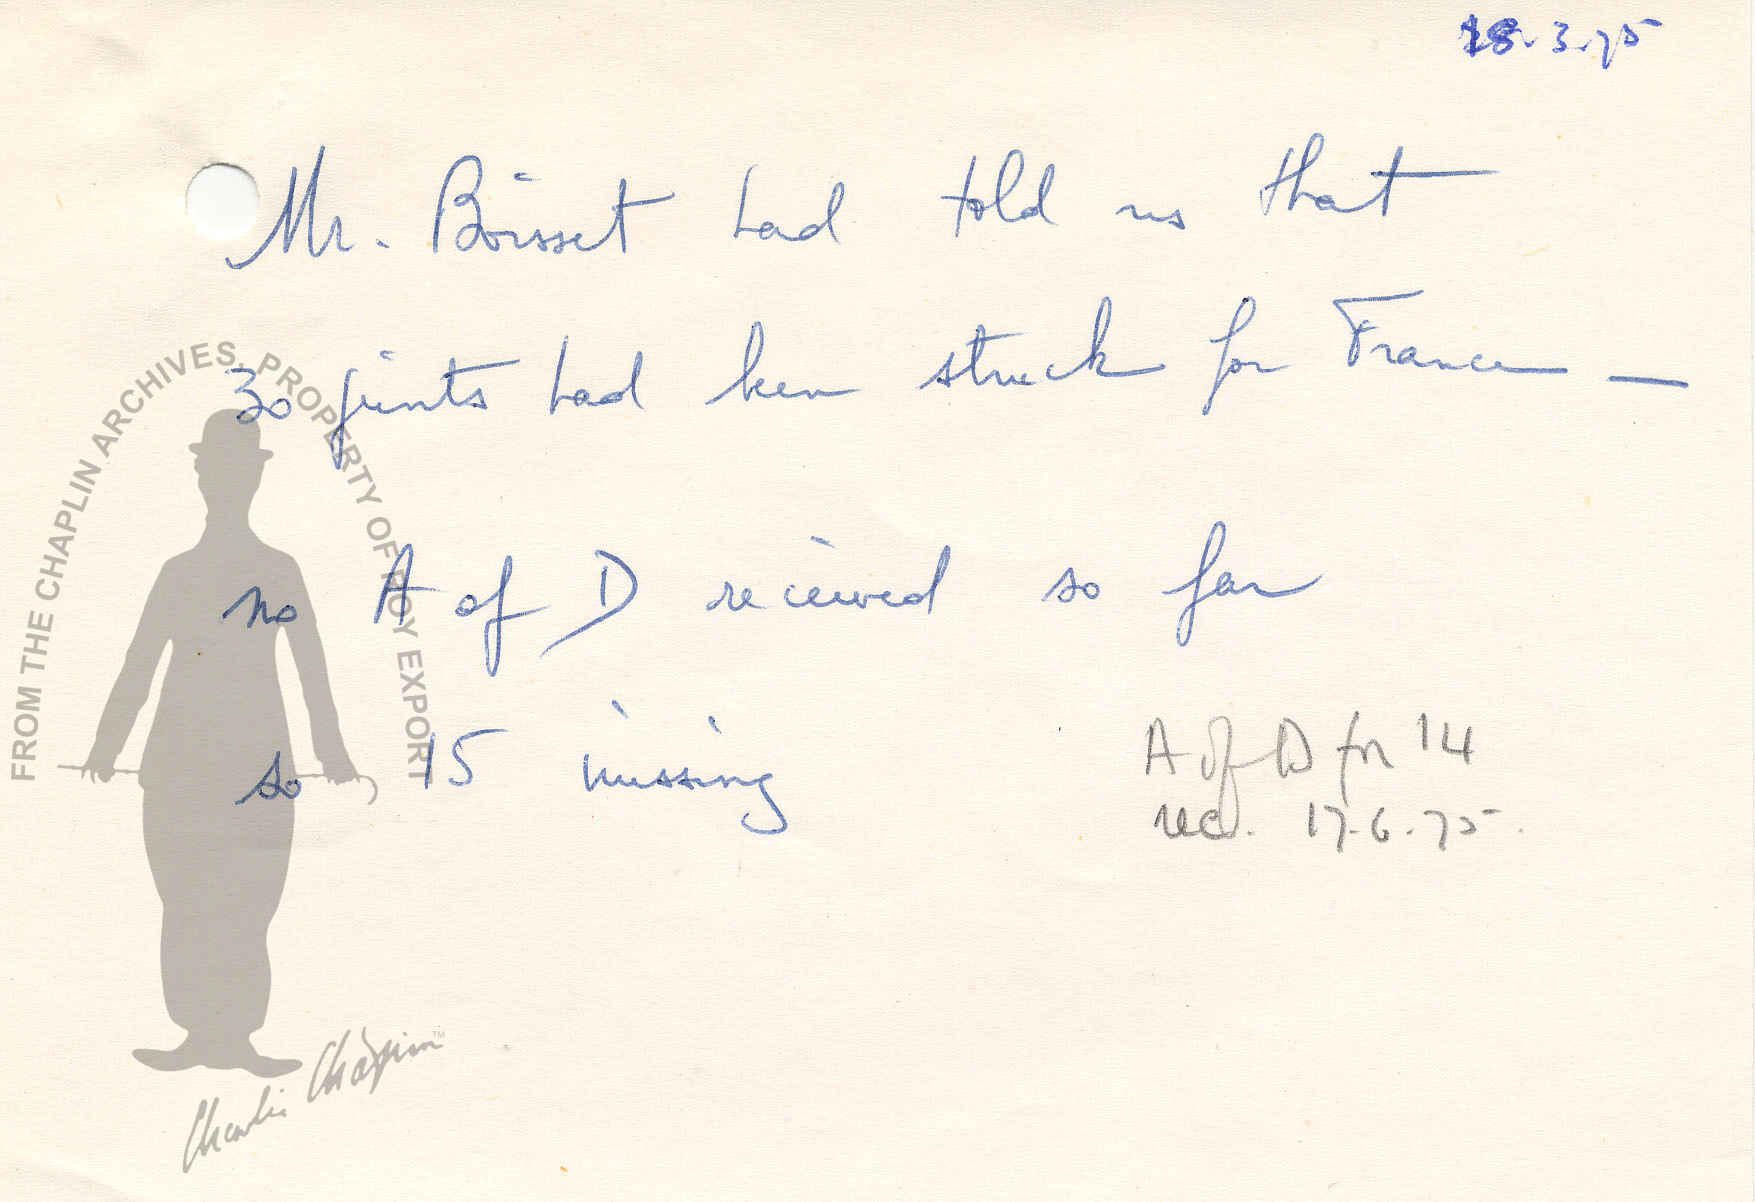 18.3.75
Mr. Boisset had told us that
30 prints had been struck for France —
no A of D received so far
so 15 missing
A of D for 14
rec. 17.6.75.
FROM THE CHAPLIN ARCHIVES, PROPERTY OF ROY EXPORT
Charlie Chaplin™